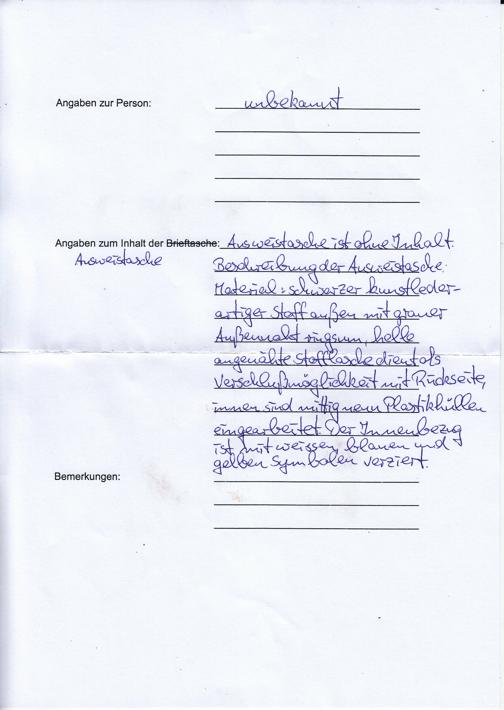 Angaben zur Person: unbekannt
Angaben zum Inhalt der Brieftasche: Ausweistasche ist ohne Inhalt.
Ausweistasche
Beschreibung der Ausweistasche:
Material: schwarzer kunstleder-
artiger Stoff außen mit grauer
Außennaht ringsum, helle
angenähte Stofflasche dient als
Verschlußmöglichkeit mit Rückseite,
innen sind mittig neun Plastikhüllen
eingearbeitet. Der Innenbezug
ist mit weissen, blauen und
gelben Symbolen verziert.
Bemerkungen: